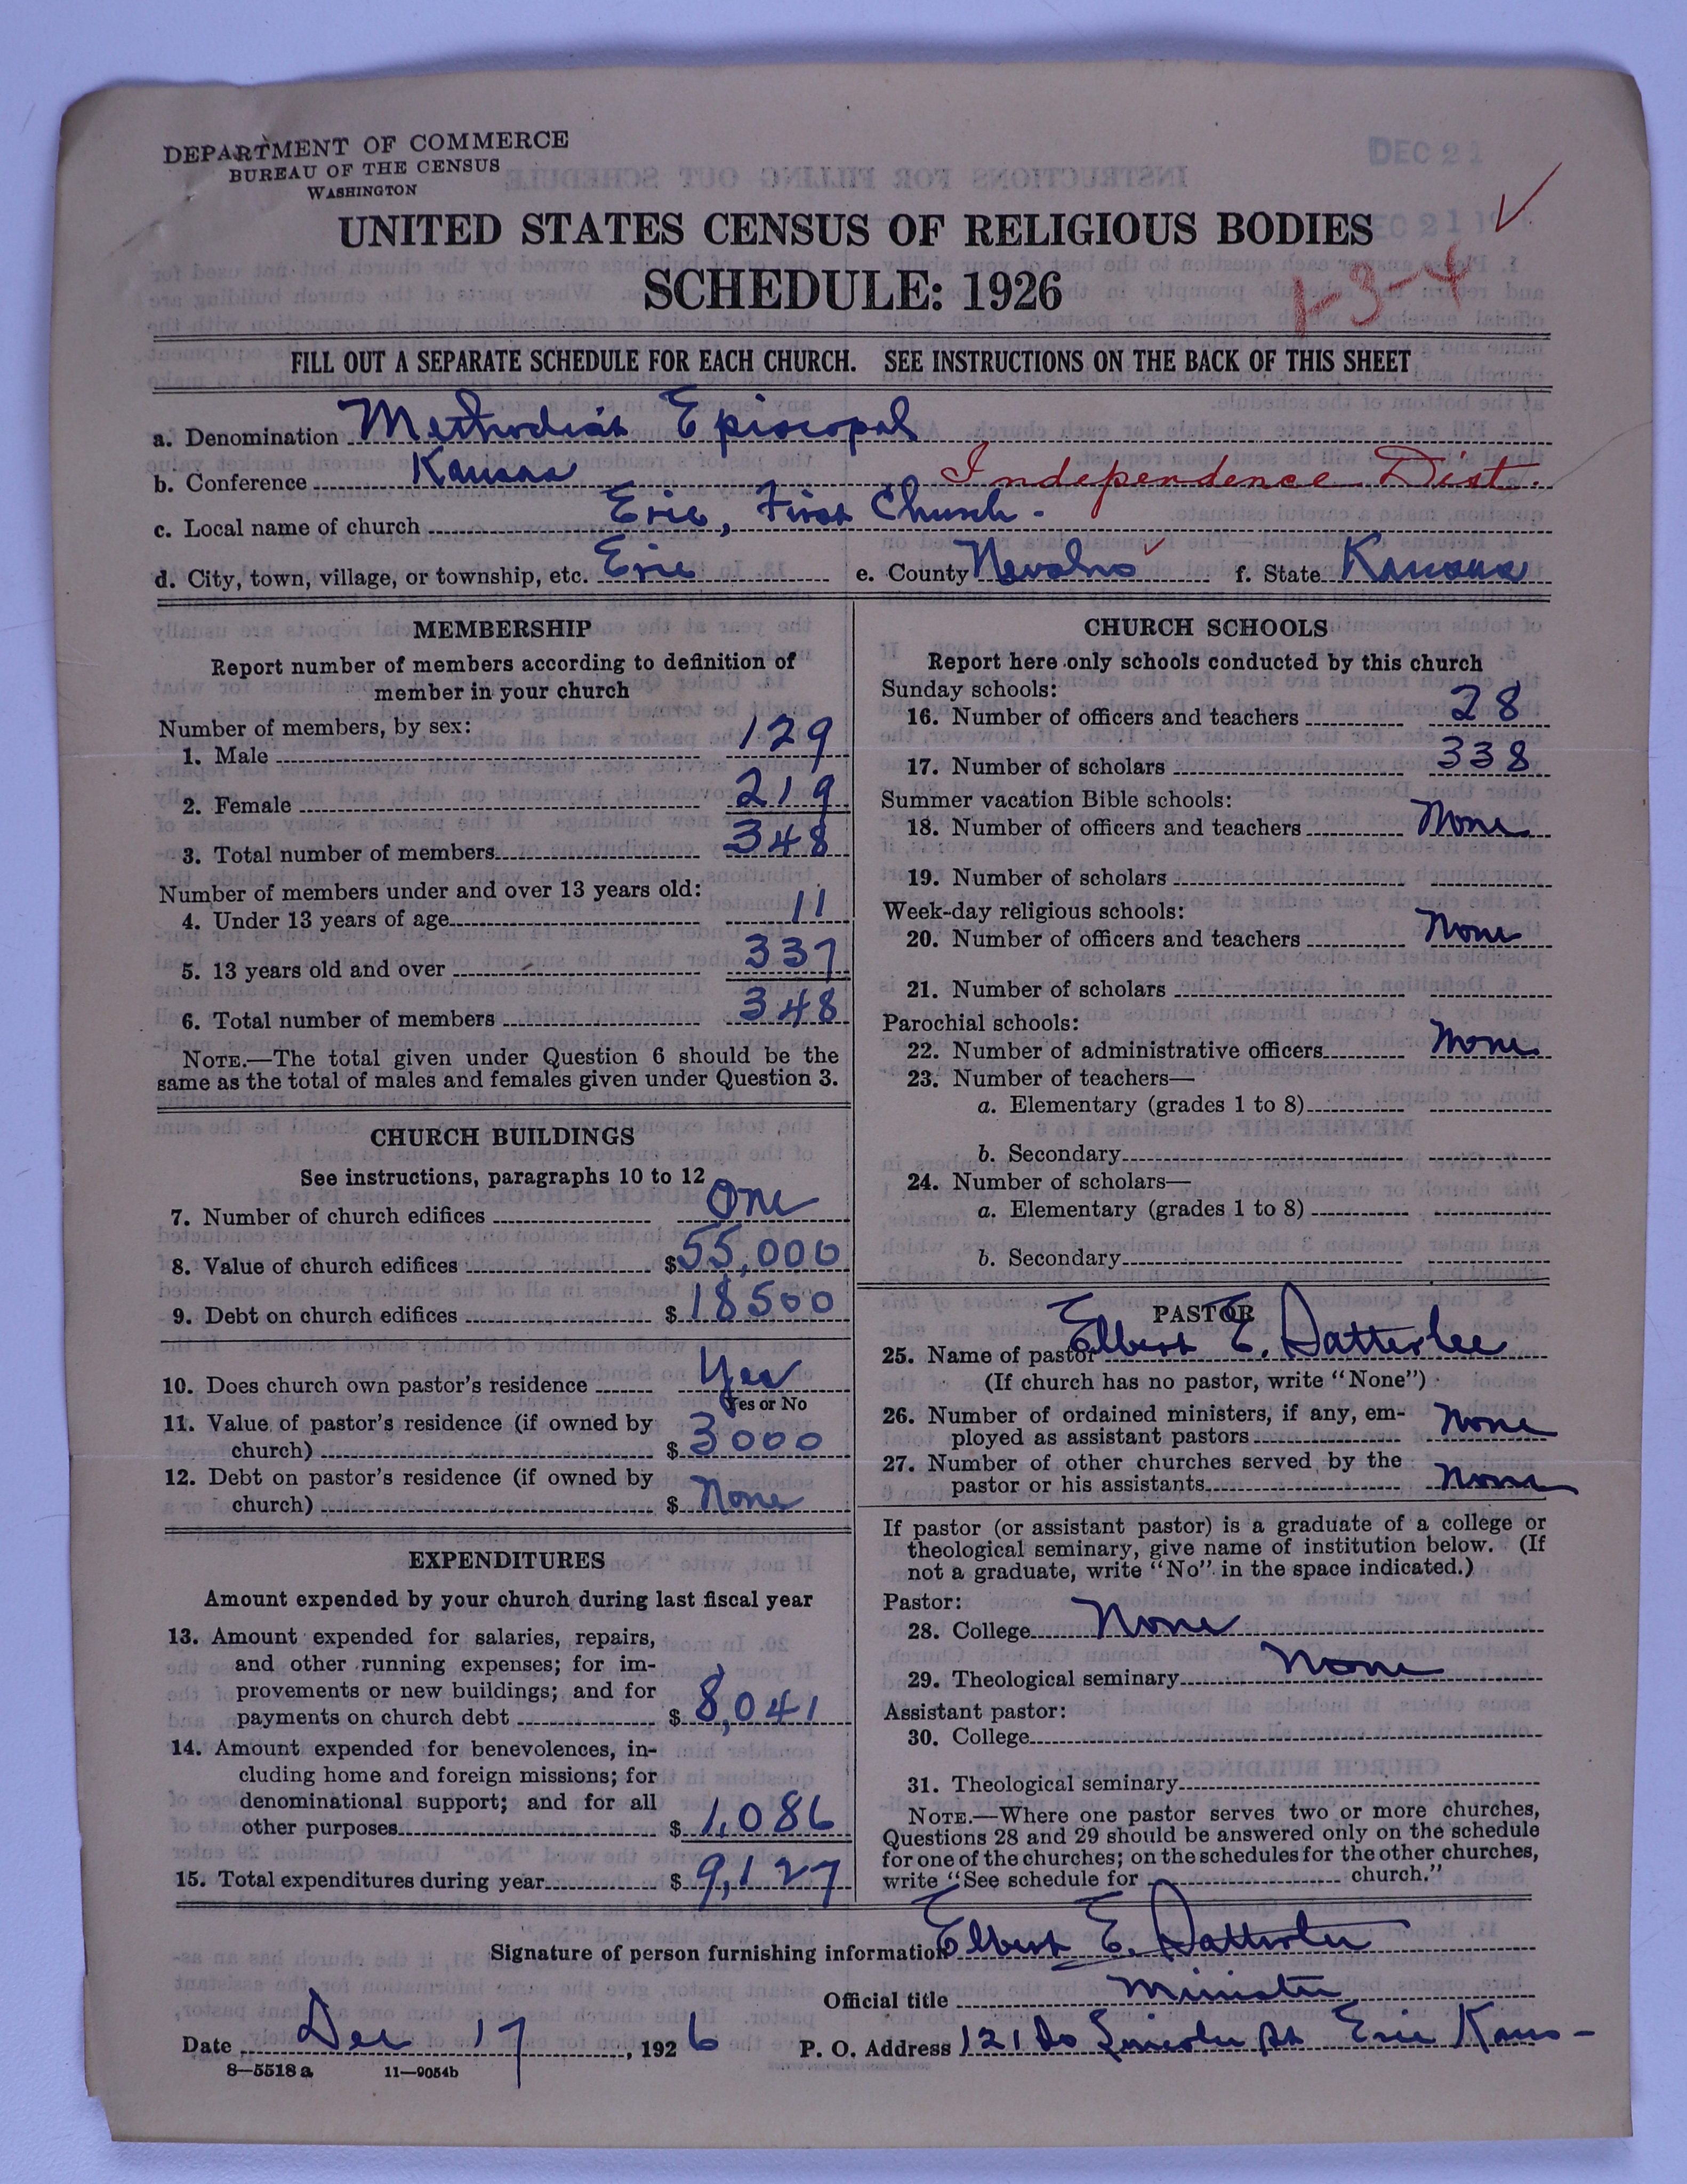 DEPARTMENT OF COMMERCE
BUREAU OF THE CENSUS
WASHINGTON
DEC 21
DEC 21
UNITED STATES CENSUS OF RELIGIOUS BODIES
SCHEDULE: 1926
1-3-4
FILL OUT A SEPARATE SCHEDULE FOR EACH CHURCH. SEE INSTRUCTIONS ON THE BACK OF THIS SHEET
a. Denomination Methodist Episcopal
b. Conference Kansas Independence Dist.
c. Local name of church Erie, First Church.
d. City, town, village, or township, etc. Erie e. County Neosho f. State Kansas
MEMBERSHIP
Report number of members according to definition of
member in your church
Number of members, by sex:
1. Male 129
2. Female 219
3. Total number of members 348
Number of members under and over 13 years old:
4. Under 13 years of age 11
5. 13 years old and over 337
6. Total number of members 348
NOTE.—The total given under Question 6 should be the
same as the total of males and females given under Question 3.
CHURCH BUILDINGS
See instructions, paragraphs 10 to 12
7. Number of church edifices One
8. Value of church edifices $55,000
9. Debt on church edifices $18500
10. Does church own pastor's residence Yes
Yes or No
11. Value of pastor's residence (if owned by
church) $3000
12. Debt on pastor's residence (if owned by
church) $None
EXPENDITURES
Amount expended by your church during last fiscal year
13. Amount expended for salaries, repairs,
and other running expenses; for im-
provements or new buildings; and for
payments on church debt $8,041
14. Amount expended for benevolences, in-
cluding home and foreign missions; for
denominational support; and for all
other purposes $1,086
15. Total expenditures during year $9,127
CHURCH SCHOOLS
Report here only schools conducted by this church
Sunday schools:
16. Number of officers and teachers 28
17. Number of scholars 338
Summer vacation Bible schools:
18. Number of officers and teachers None
19. Number of scholars
Week-day religious schools:
20. Number of officers and teachers None
21. Number of scholars
Parochial schools:
22. Number of administrative officers None
23. Number of teachers—
a. Elementary (grades 1 to 8)
b. Secondary
24. Number of scholars—
a. Elementary (grades 1 to 8)
b. Secondary
PASTOR
25. Name of pastor Elbert E. Satterlee
(If church has no pastor, write "None")
26. Number of ordained ministers, if any, em-
ployed as assistant pastors None
27. Number of other churches served by the
pastor or his assistants None
If pastor (or assistant pastor) is a graduate of a college or
theological seminary, give name of institution below. (If
not a graduate, write "No" in the space indicated.)
Pastor:
28. College None
29. Theological seminary None
Assistant pastor:
30. College
31. Theological seminary
NOTE.—Where one pastor serves two or more churches,
Questions 28 and 29 should be answered only on the schedule
for one of the churches; on the schedules for the other churches,
write "See schedule for church."
Signature of person furnishing information Elbert E. Satterlee
Official title Minister
Date Dec 17, 1926 P. O. Address 121 So Lincoln St Erie Kans-
8—5518a 11—9054b